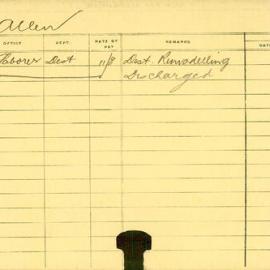 Allen
OFFICE DEPT. RATE OF PAY REMARKS DAT
Laborer Dist Dist. Remodelling
Discharged